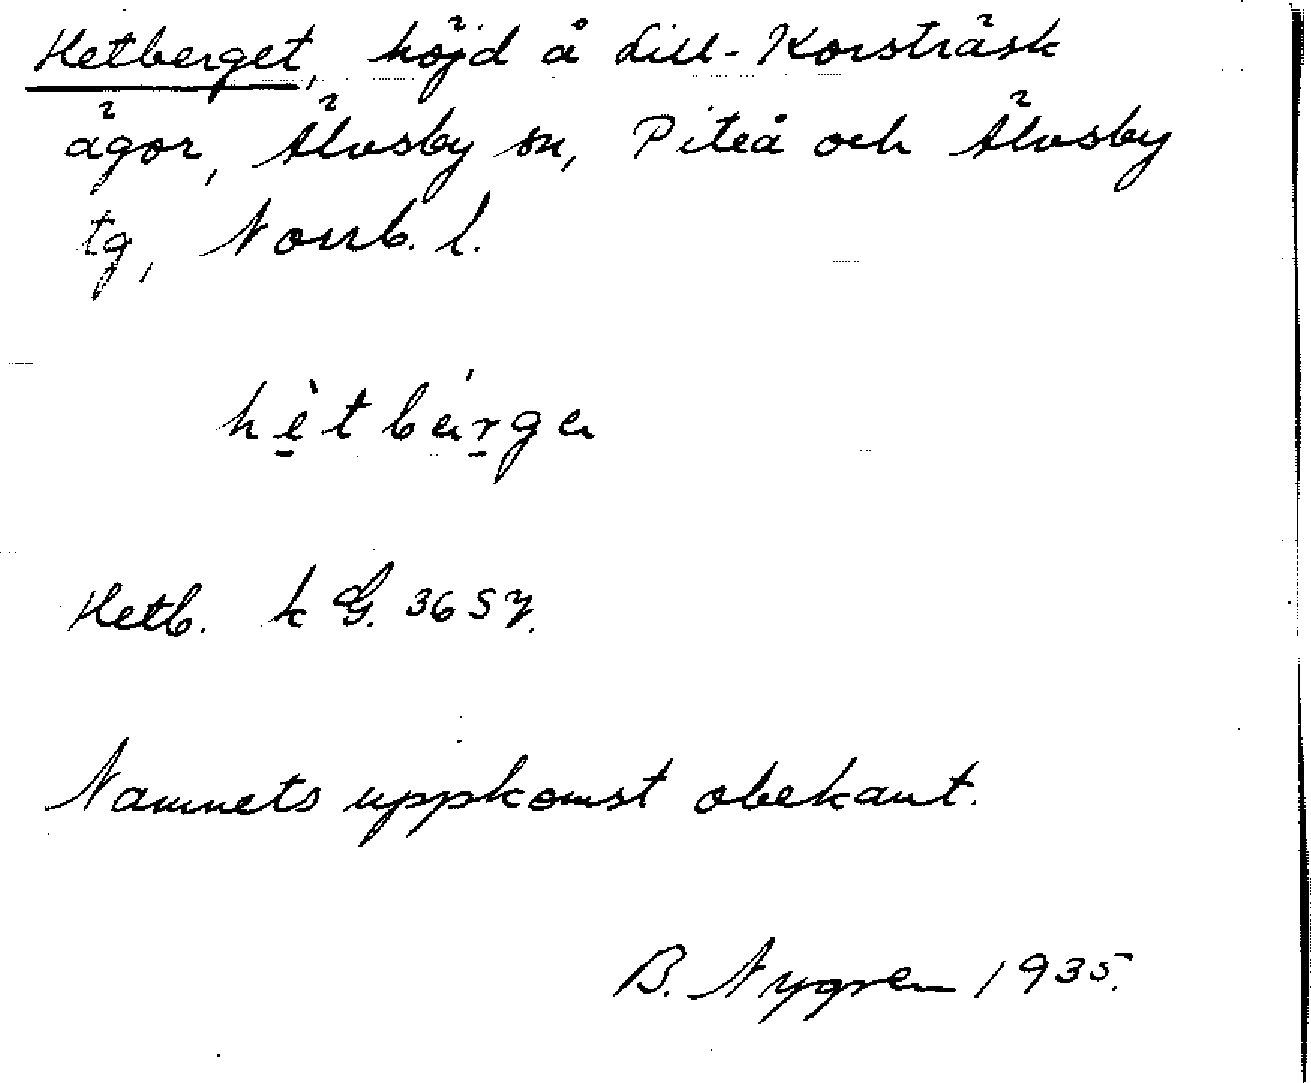 Hetberget, höjd å Lill-Korsträsk
ägor, Älvsby sn, Piteå och Älvsby
tg, Norrb. l.
hètbérga
Hetb. k G. 3657.
Namnets uppkomst obekant.
B. Nygren 1935.